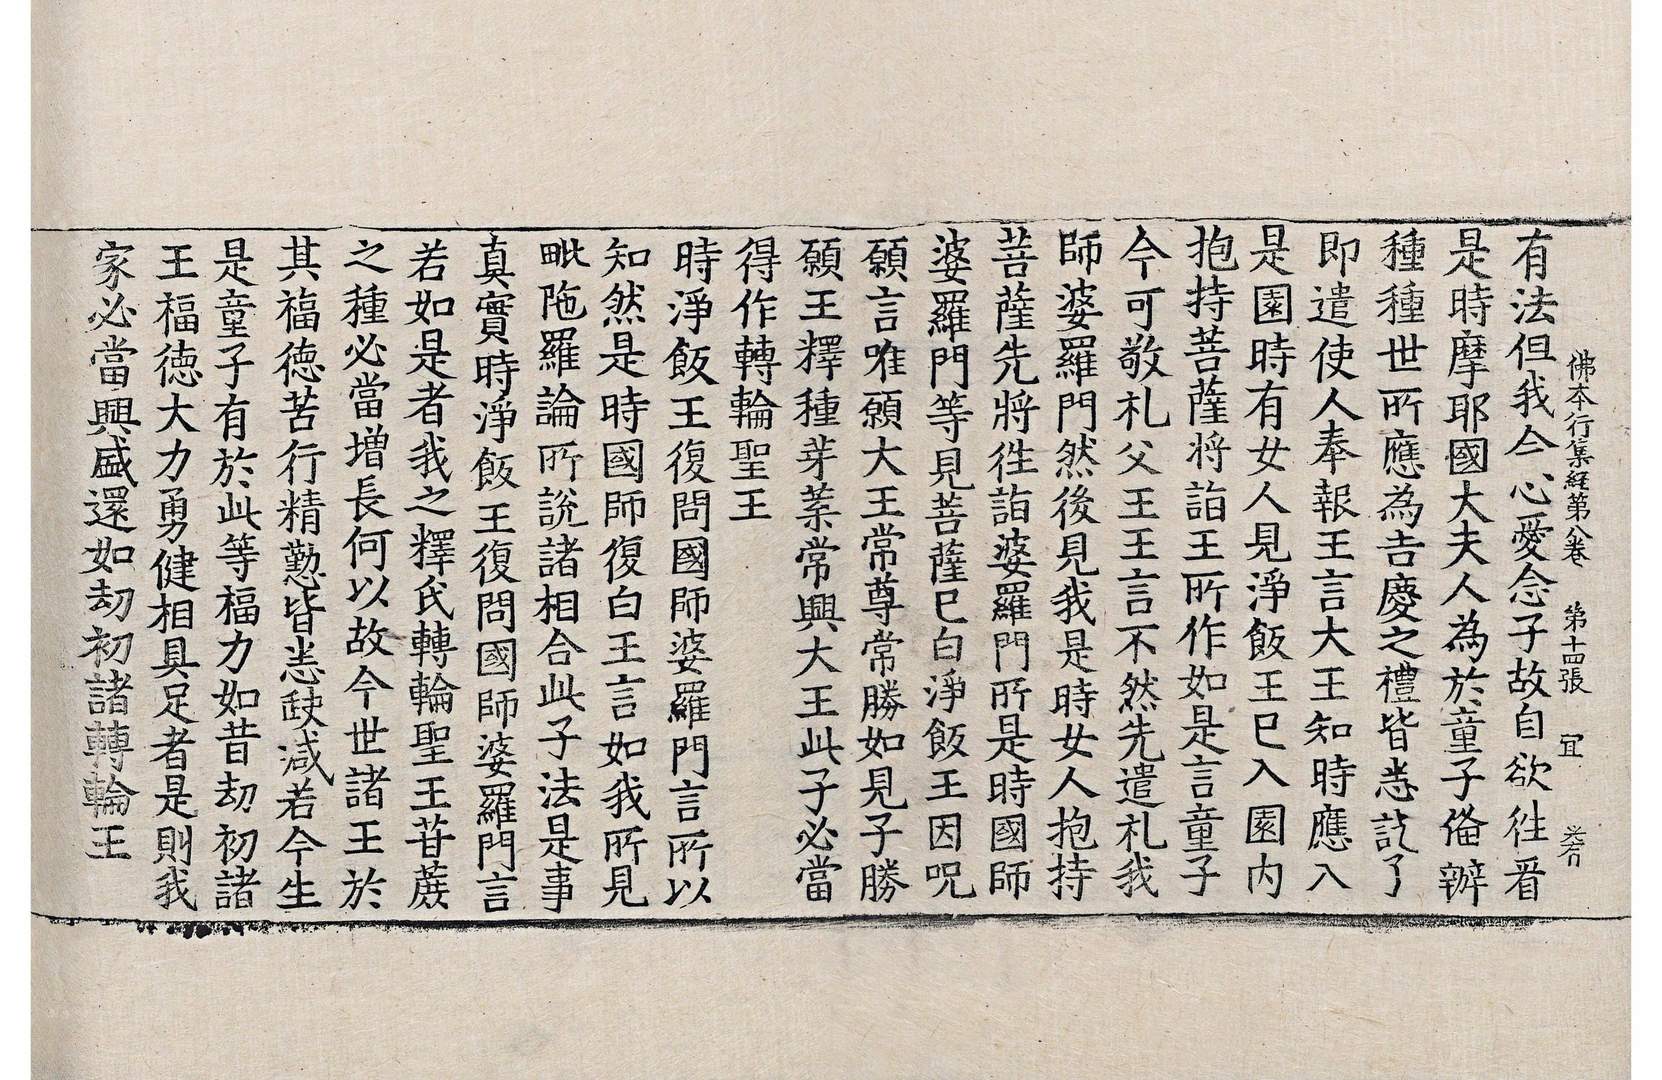 佛本行集経第八卷 第十四張 冝
有法但我今心愛念子故自欲徃㸔
是時摩耶國大夫人為於童子偹辦
種種世所應為吉慶之禮皆悉訖了
即遣使人奉報王言大王知時應入
是園時有女人見淨飯王巳入園内
抱持菩薩將詣王所作如是言童子
今可敬礼父王王言不然先遣礼我
師婆羅門然後見我是時女人抱持
菩薩先將徃詣婆羅門所是時國師
婆羅門等見菩薩巳白淨飯王因呪
願言唯願大王常尊常勝如見子勝
願王釋種芽蘂常興大王此子必當
得作轉輪聖王
時淨飯王復問國師婆羅門言所以
知然是時國師復白王言如我所見
毗陁羅論所說諸相合此子法是事
真實時淨飯王復問國師婆羅門言
若如是者我之釋氏轉輪聖王苷蔗
之種必當增長何以故今世諸王於
其福德苦行精懃皆悉缺减若今生
是童子有於此等福力如昔劫初諸
王福德大力勇健相具足者是則我
家必當興盛還如劫初諸轉輪王